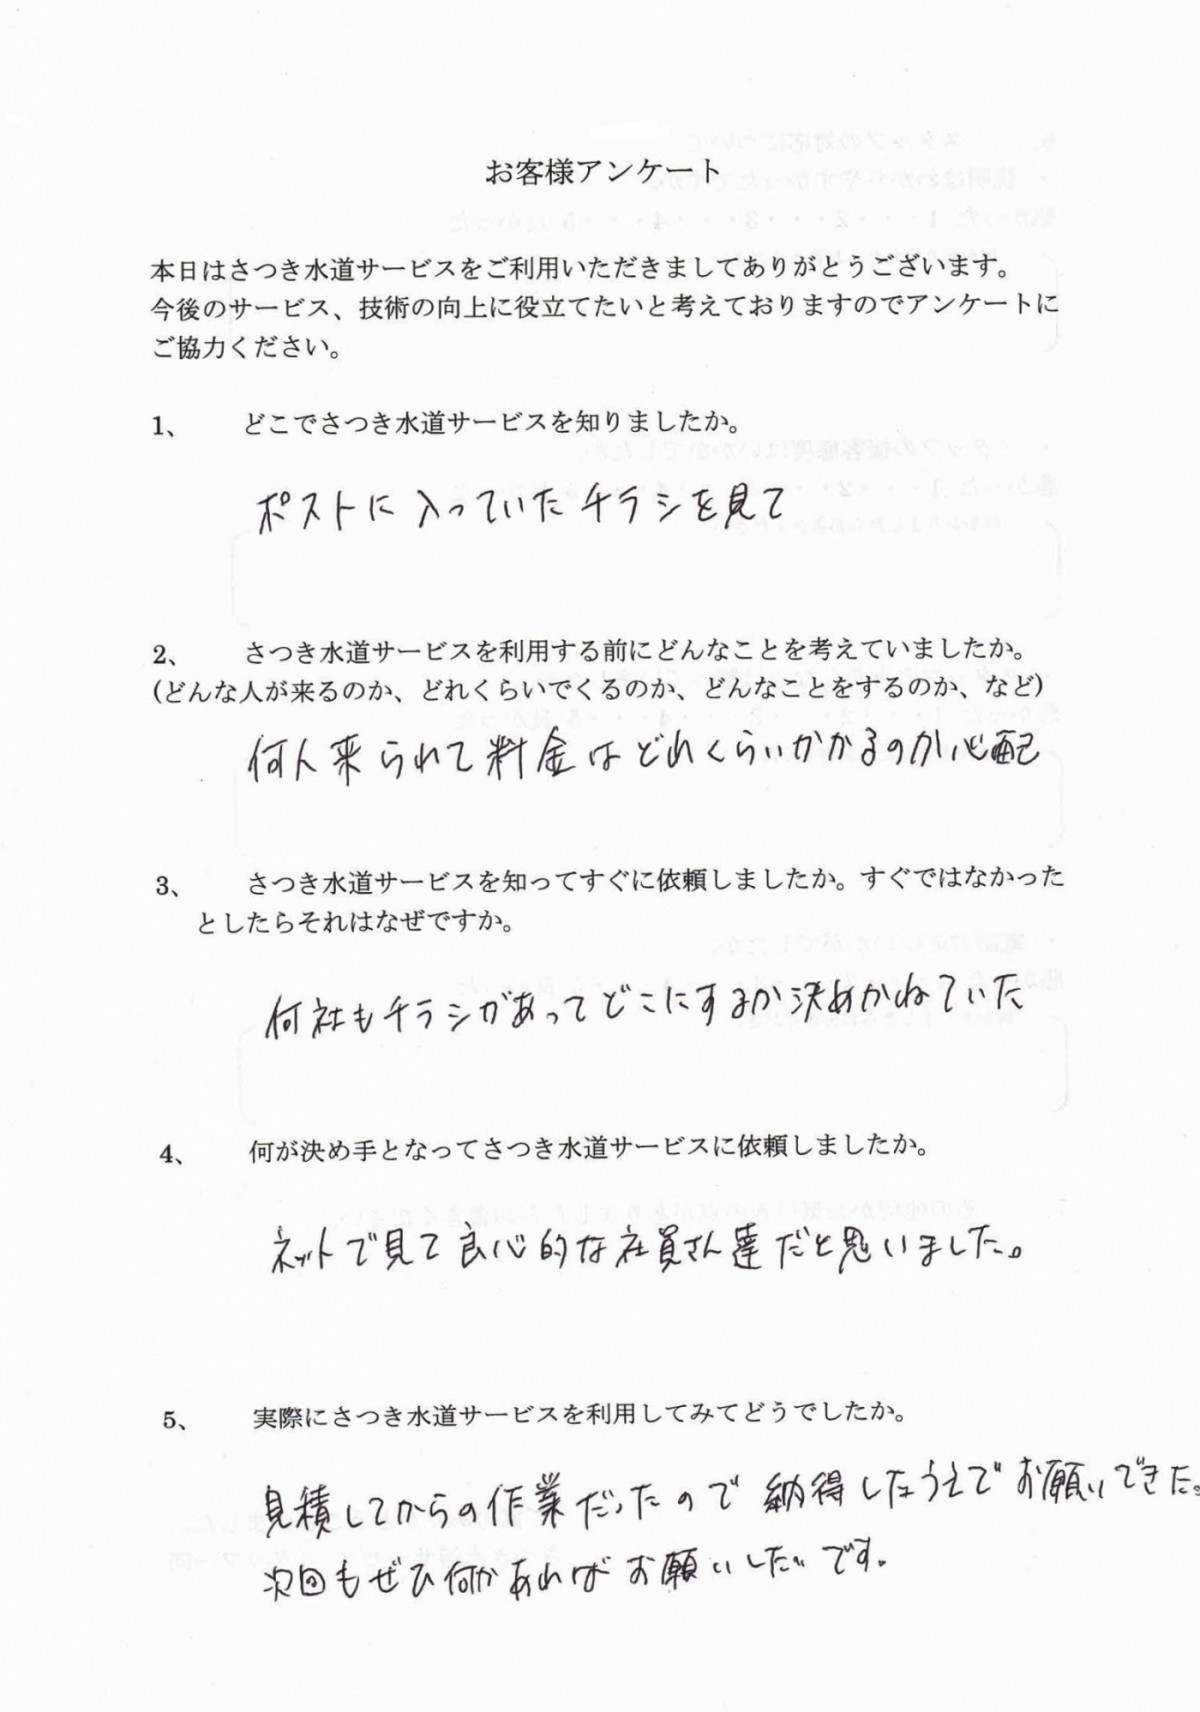 お客様アンケート
本日はさつき水道サービスをご利用いただきましてありがとうございます。
今後のサービス、技術の向上に役立てたいと考えておりますのでアンケートに
ご協力ください。
1、 どこでさつき水道サービスを知りましたか。
ポストに入っていたチラシを見て
2、 さつき水道サービスを利用する前にどんなことを考えていましたか。
(どんな人が来るのか、どれくらいでくるのか、どんなことをするのか、など)
何人来られて料金はどれくらいかかるのか心配
3、 さつき水道サービスを知ってすぐに依頼しましたか。すぐではなかった
としたらそれはなぜですか。
何社もチラシがあってどこにするか決めかねていた
4、 何が決め手となってさつき水道サービスに依頼しましたか。
ネットで見て良心的な社員さん達だと思いました。
5、 実際にさつき水道サービスを利用してみてどうでしたか。
見積してからの作業だったので納得したうえでお願いできた。
次回もぜひ何かあればお願いしたいです。